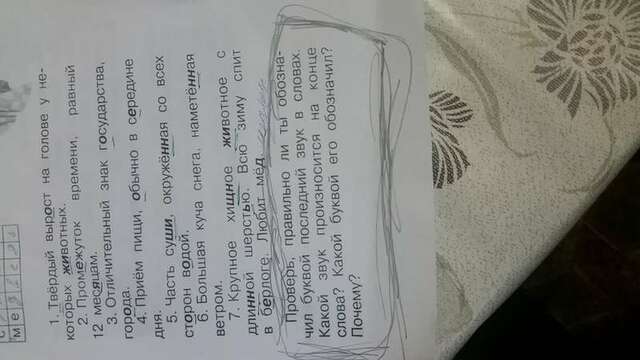 м е
1. Твёрдый вырост на голове у не-
которых животных.
2. Промежуток времени, равный
12 месяцам.
3. Отличительный знак государства,
города.
4. Приём пищи, обычно в середине
дня.
5. Часть суши, окружённая со всех
сторон водой.
6. Большая куча снега, наметённая
ветром.
7. Крупное хищное животное с
длинной шерстью. Всю зиму спит
в берлоге. Любит мёд
Проверь, правильно ли ты обозна-
чил буквой последний звук в словах.
Какой звук произносится на конце
слова? Какой буквой его обозначил?
Почему?